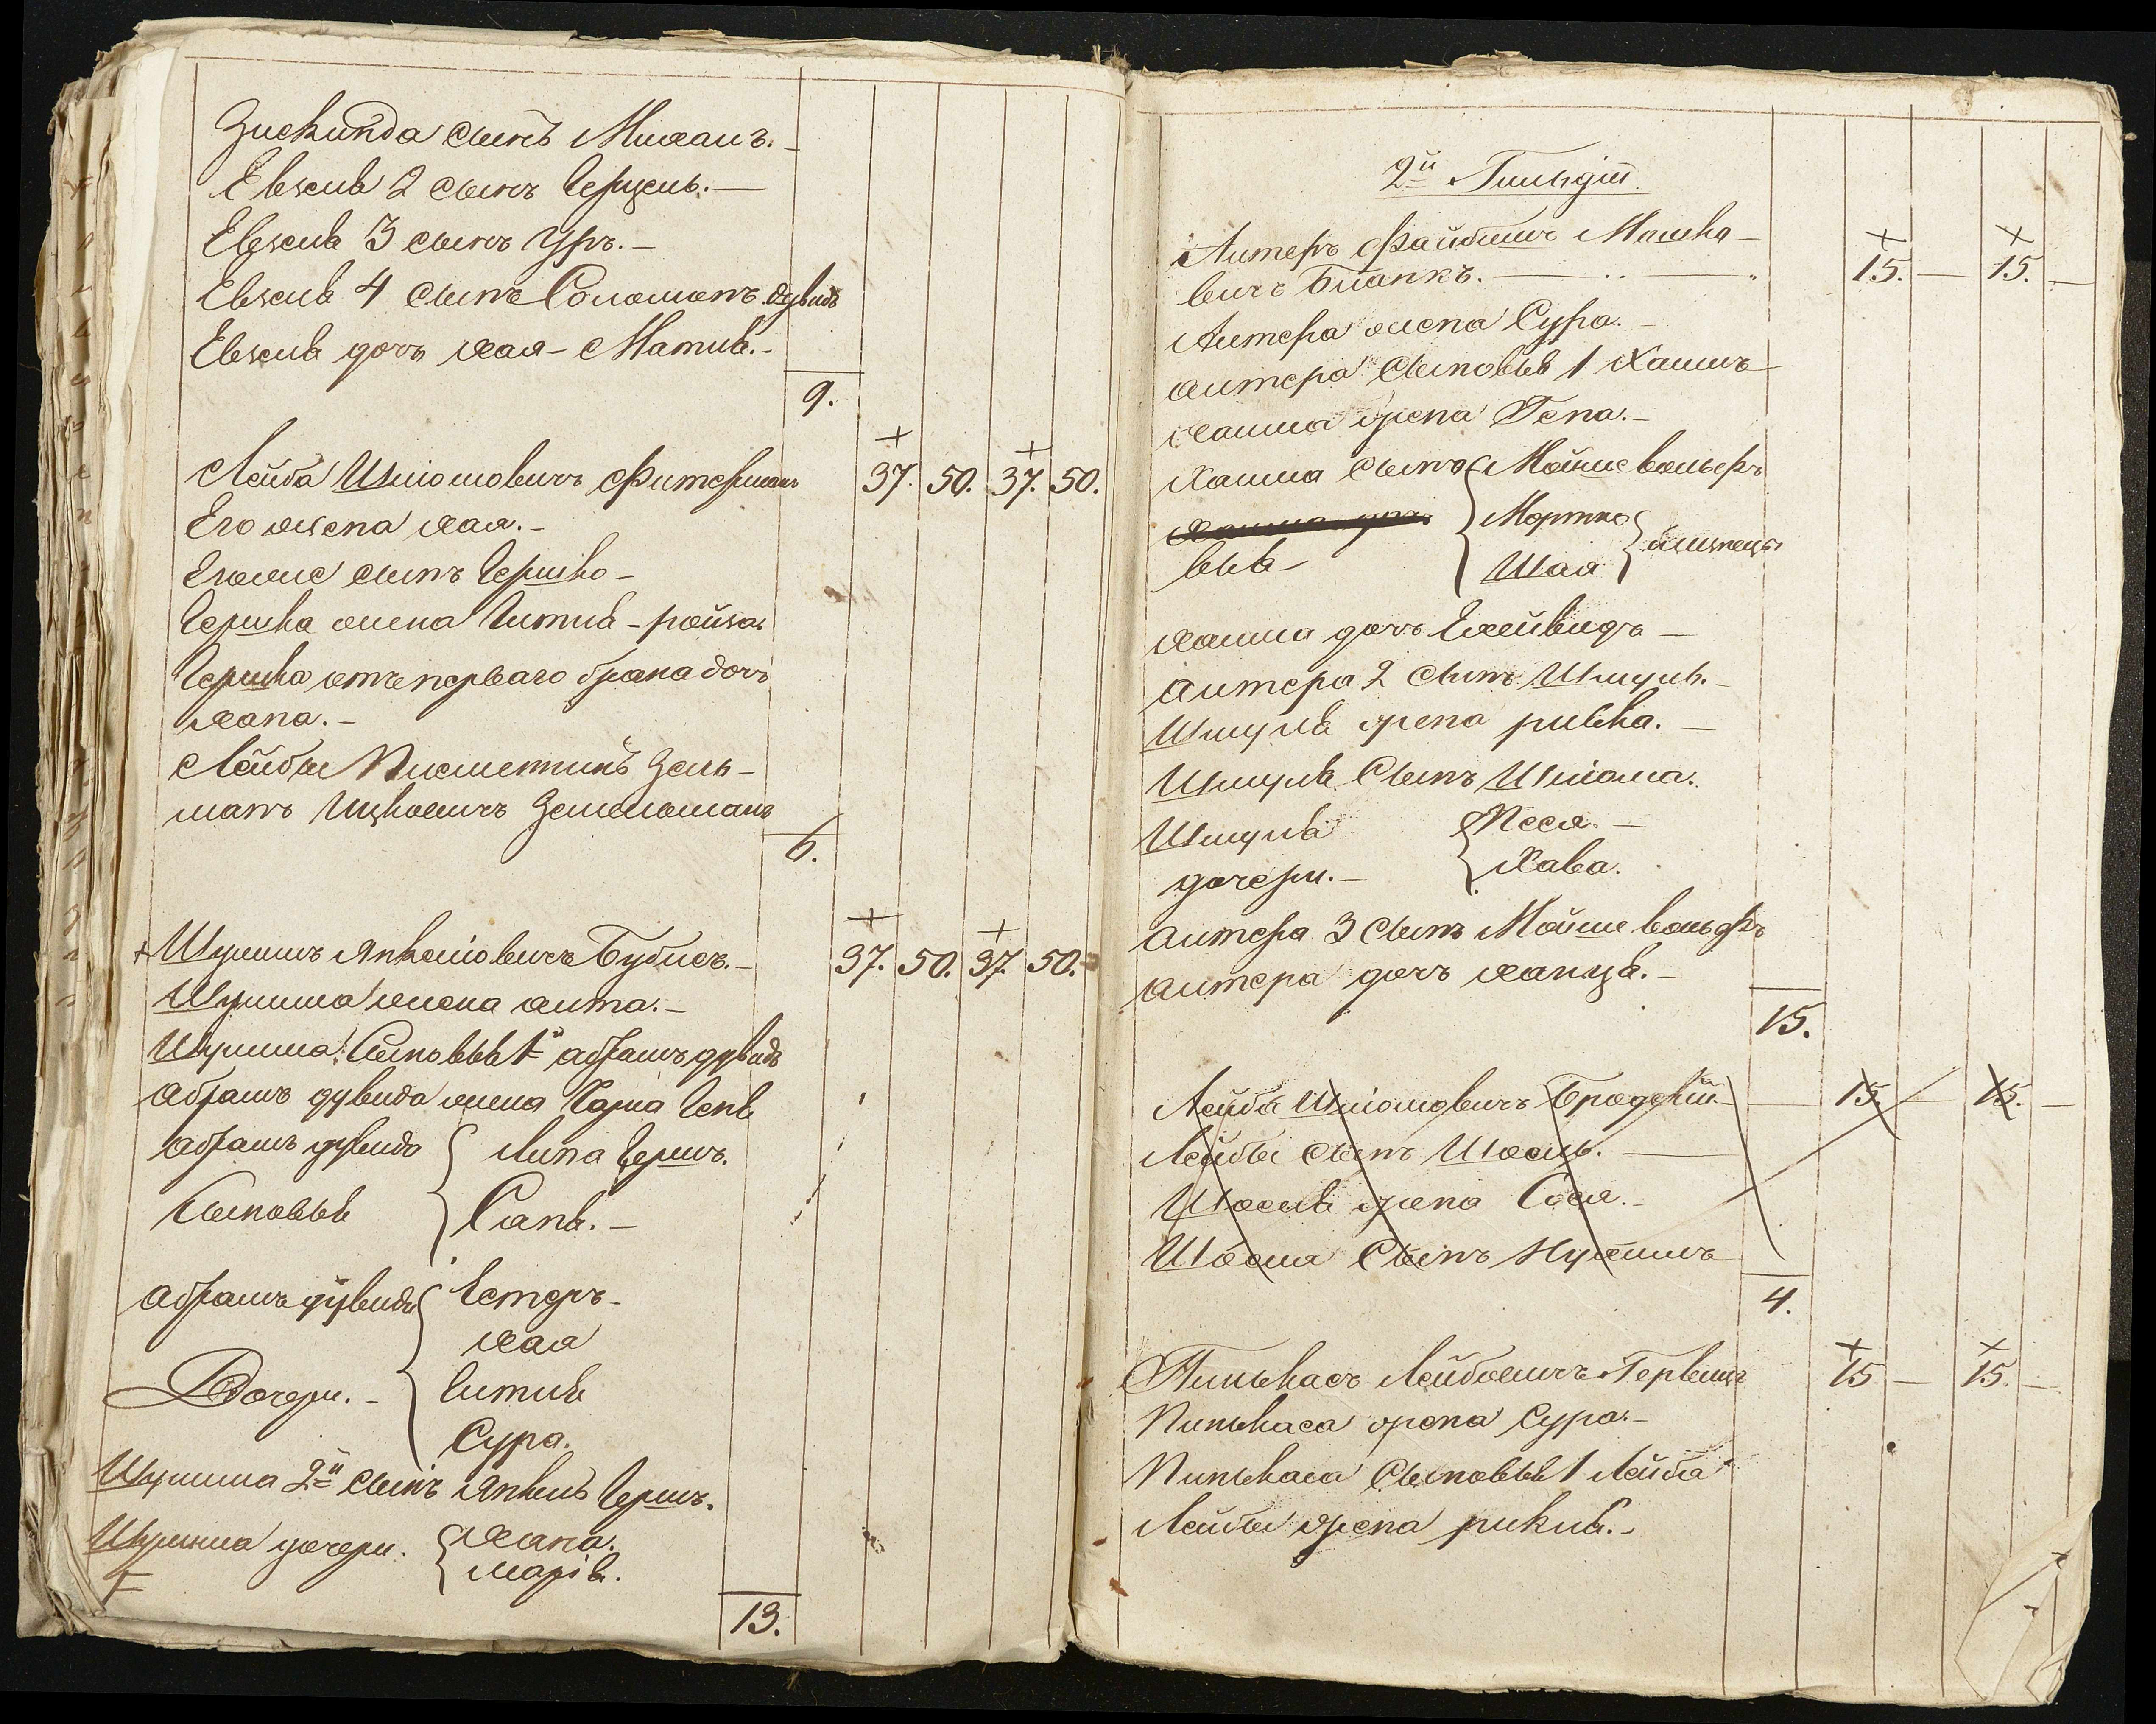 Зискинда сынъ Михаль.
Евзеля 2 сынъ Герцель. —
Евзеля 3 сынъ Уръ. —
Евзеля 4 сынъ Соломонъ Дувидъ
Евзеля дочь Хая - Матля. -
9.
Лейба Шліомовичъ Фитерманъ 37. 50. 37. 50.
Его жена Хая. -
Его же сынъ Гершко -
Гершка жена Гитля - ройза.
Гершка отъ перваго брака дочь
Хана. -
Лейбы Племянникъ Зель-
манъ Ицковичъ
6.
+ Шулимъ Янкеліовичъ Бубисъ. - 37. 50. 37. 50.
Шулима жена анта. -
Шулима Сыновья 1й абрамъ дувидъ
абрамъ дувида жена Чарна Геня
абрамъ дувида Липа Гершъ.
Сыновья Саня. -
абрамъ дувида Естеръ -
Хая
Дочери. - Гитля
Сура.
Шулима 2й сынъ Янкель Гершъ.
Шулима дочери. Хана.
марія.
13.
2й Гильдіи
Антеръ Файбишъ Мошко-
вичъ Бланкъ. — 15. — 15. —
Антера жена Сура. -
антера Сыновья 1 Хаимъ
Хаима жена Гена. -
Хаима Сыно Мойше вольфъ
Мортко
вья - Шая близнецы
Хаима дочь Ехейвидъ —
антера 2 Сынъ Шмуль. -
Шмуля жена ривка. —
Шмуля Сынъ Шліома.
Шмуля Песя. —
дочери. — Хава.
антера 3 Сынъ Мойше вольфъ
антера дочь Ханця. -
15.
Лейба Шліомовичъ Бродскій. — 15. — 15. —
Лейбы Сынъ Іосль. —
Іосля жена Сося. -
Іосля Сынъ Нухимъ
4.
Пинькасъ Лейбовичъ Гервицъ 15 — 15. —
Пинькаса жена Сура. -
Пинькаса Сыновья 1 Лейба
Лейбы жена рикля. -